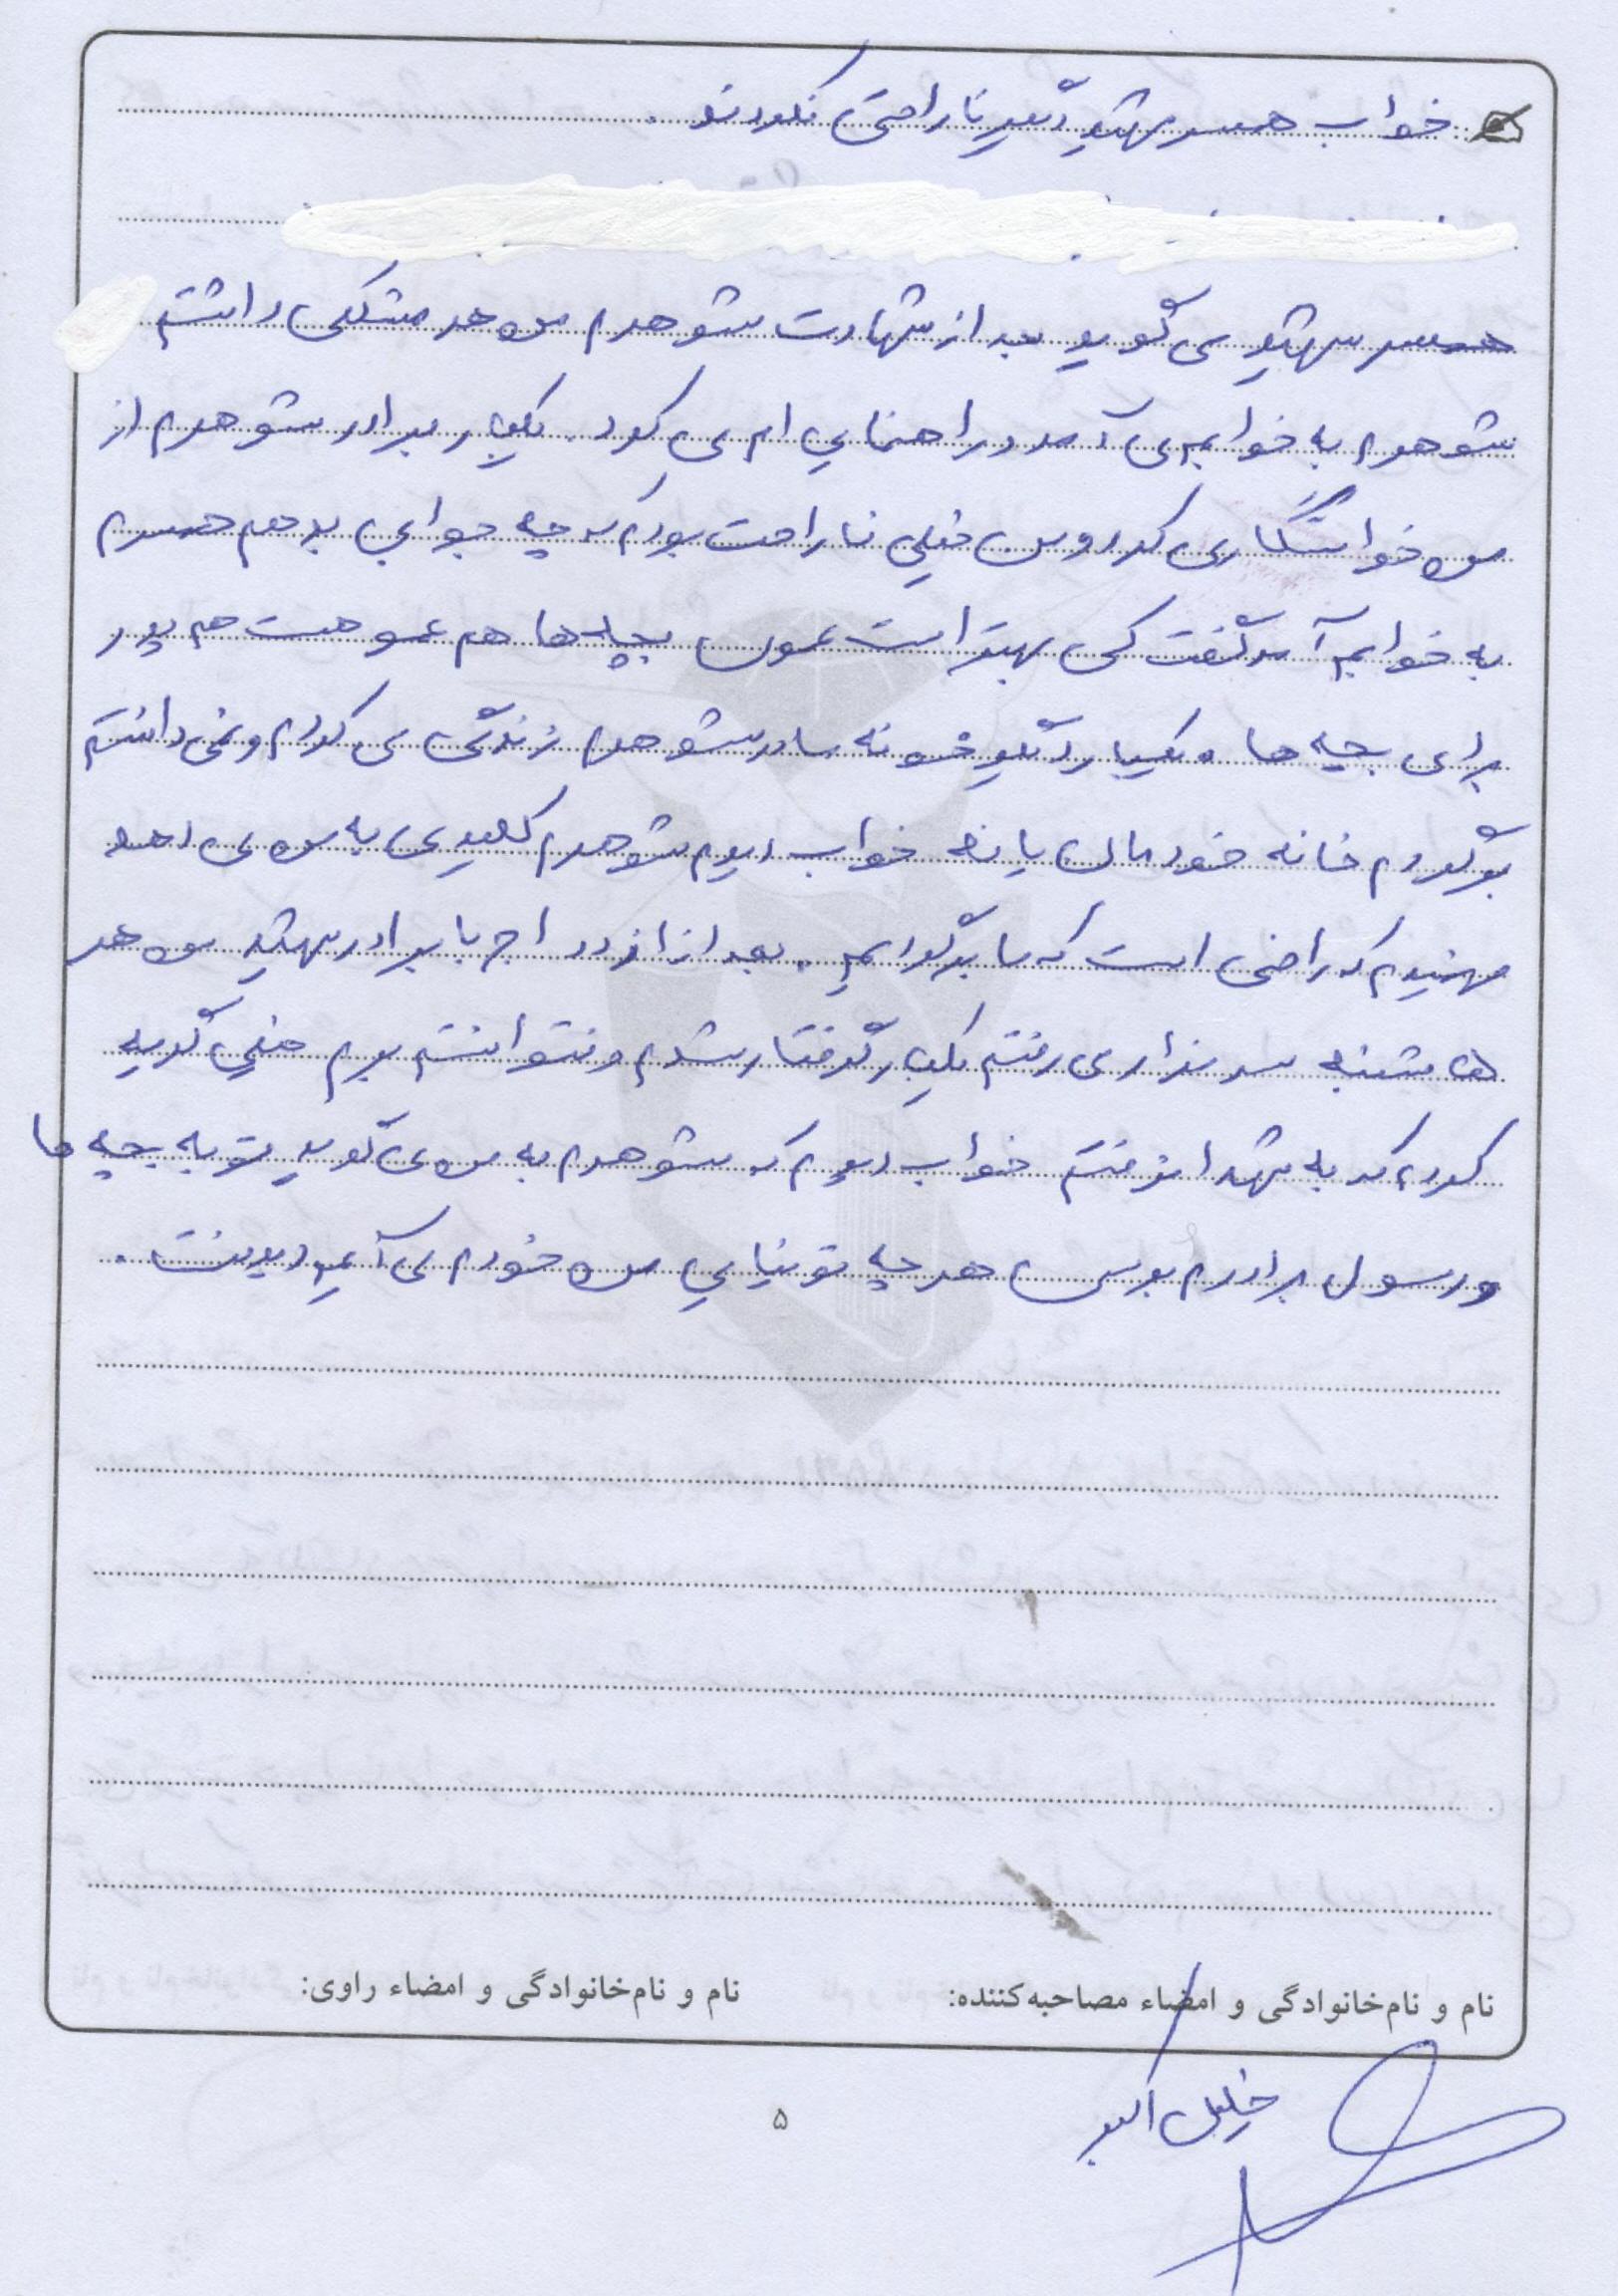 خواب همسر شهید دیگر ناراحتی نکردند.
همسر شهید می گوید بعد از شهادت شوهرم من هر مشکلی داشتم
شوهرم به خوابم می آمد و راهنمایی ام می کرد. یکبار برادر شوهرم از
من خواستگاری کرد و من خیلی ناراحت بودم که چه جوابی بدهم همسرم
به خوابم آمد گفت کی بهتر است عموی بچه ها هم عمو هست هم پدر
برای بچه ها. یکبار دیگر خونه مادر شوهرم زندگی می کردم و نمی دانستم
برگردم خانه خودمان یا نه خواب دیدم شوهرم کلیدی به من می دهد
فهمیدم که راضی است که ما برگردیم. بعد از ازدواج با برادر شهید من هر
شنبه سر مزار می رفتم یکبار گرفتار شدم و نتوانستم بروم خیلی گریه
کردم که به شهدا نرفتم خواب دیدم که شوهرم به من می گوید تو به بچه ها
و رسول برادرم برس هر چه تو نیایی من خودم می آیم دیدنت.
نام و نام‌خانوادگی و امضاء مصاحبه‌کننده:
نام و نام‌خانوادگی و امضاء راوی:
خلیل اکبر
۵